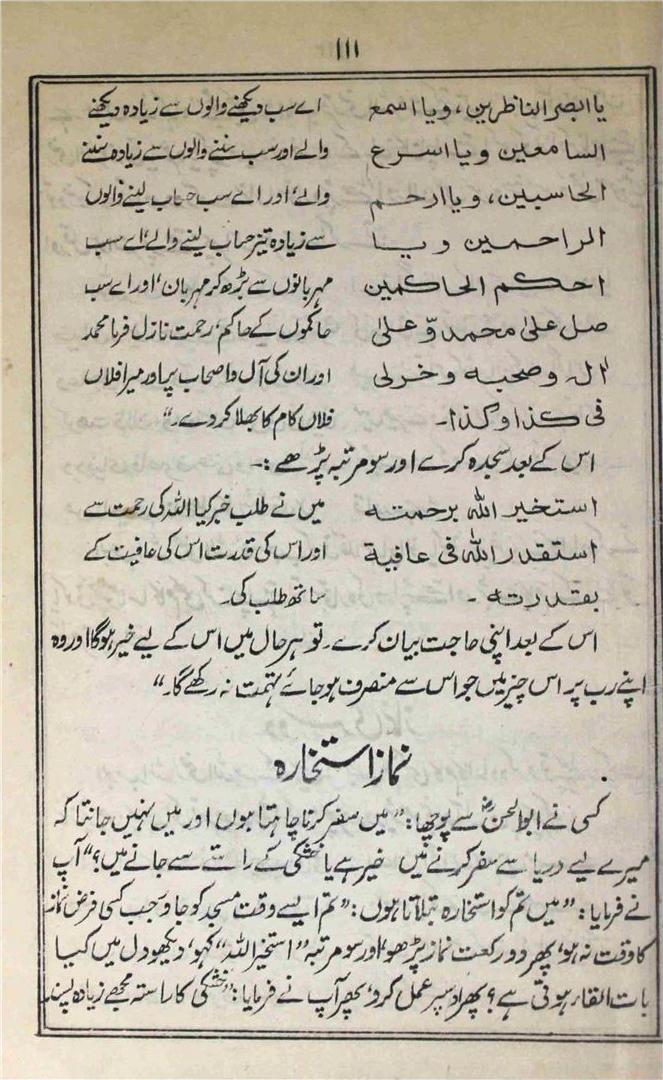 ۱۱۱
یا ابصر الناظرین، ویا اسمع اے سب دیکھنے والوں سے زیادہ دیکھنے
السامعین ویا اسرع والے اور سب سننے والوں سے زیادہ سننے
الحاسبین، ویا ارحم والے، اور اے سب حساب لینے والوں
الراحمین ویا سے زیادہ تیز حساب لینے والے، اے سب
احکم الحاکمین مہربانوں سے بڑھ کر مہربان، اور اے سب
صل علیٰ محمد وّ علیٰ حاکموں کے حاکم، رحمت نازل فرما محمد
اٰلہ وصحبہ وخرلی اور ان کی آل و اصحاب پر اور میرا فلاں
فی کذا وکذا۔ فلاں کام کا بھلا کر دے۔“
اس کے بعد سجدہ کرے اور سو مرتبہ پڑھے :۔
استخیر اللہ برحمتہ میں نے طلب خیر کیا اللہ کی رحمت سے
استقدر اللہ فی عافیة اور اس کی قدرت اس کی عافیت کے
بقدرتہ ۔ ساتھ طلب کی۔
اس کے بعد اپنی حاجت بیان کرے۔ تو ہر حال میں اس کے لیے خیر ہوگا اور وہ
اپنے رب پر اس چیز میں جو اس سے منصرف ہو جائے تہمت نہ رکھے گا۔“
نماز استخارہ
کسی نے ابوالحنؓ سے پوچھا: ”میں سفر کرنا چاہتا ہوں اور میں نہیں جانتا کہ
میرے لیے دریا سے سفر کرنے میں خیر ہے یا خشکی کے راستے سے جانے میں؟“ آپ
نے فرمایا: ”میں تم کو استخارہ بتلاتا ہوں: ”تم ایسے وقت مسجد کو جاؤ جب کسی فرض نماز
کا وقت نہ ہو، پھر دو رکعت نماز پڑھو، اور سو مرتبہ ”استخیر اللہ“ کہو، دیکھو دل میں کیا
بات القار ہوتی ہے؟ پھر اوسپر عمل کرو، پھر آپ نے فرمایا: ”خشکی کا راستہ مجھے زیادہ پسند